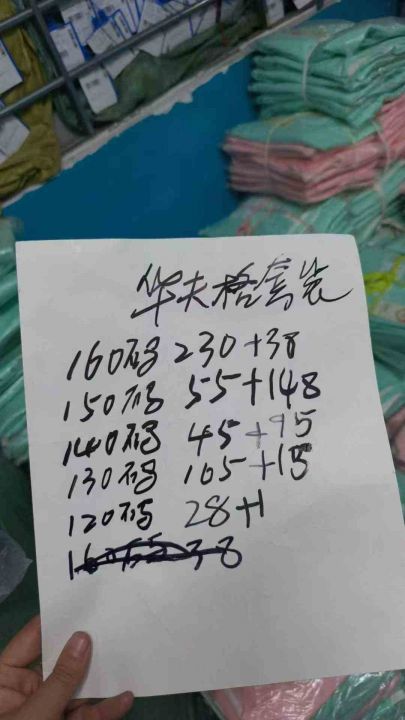 华夫格套装
160码 230+38
150码 55+148
140码 45+95
130码 165+15
120码 28+1